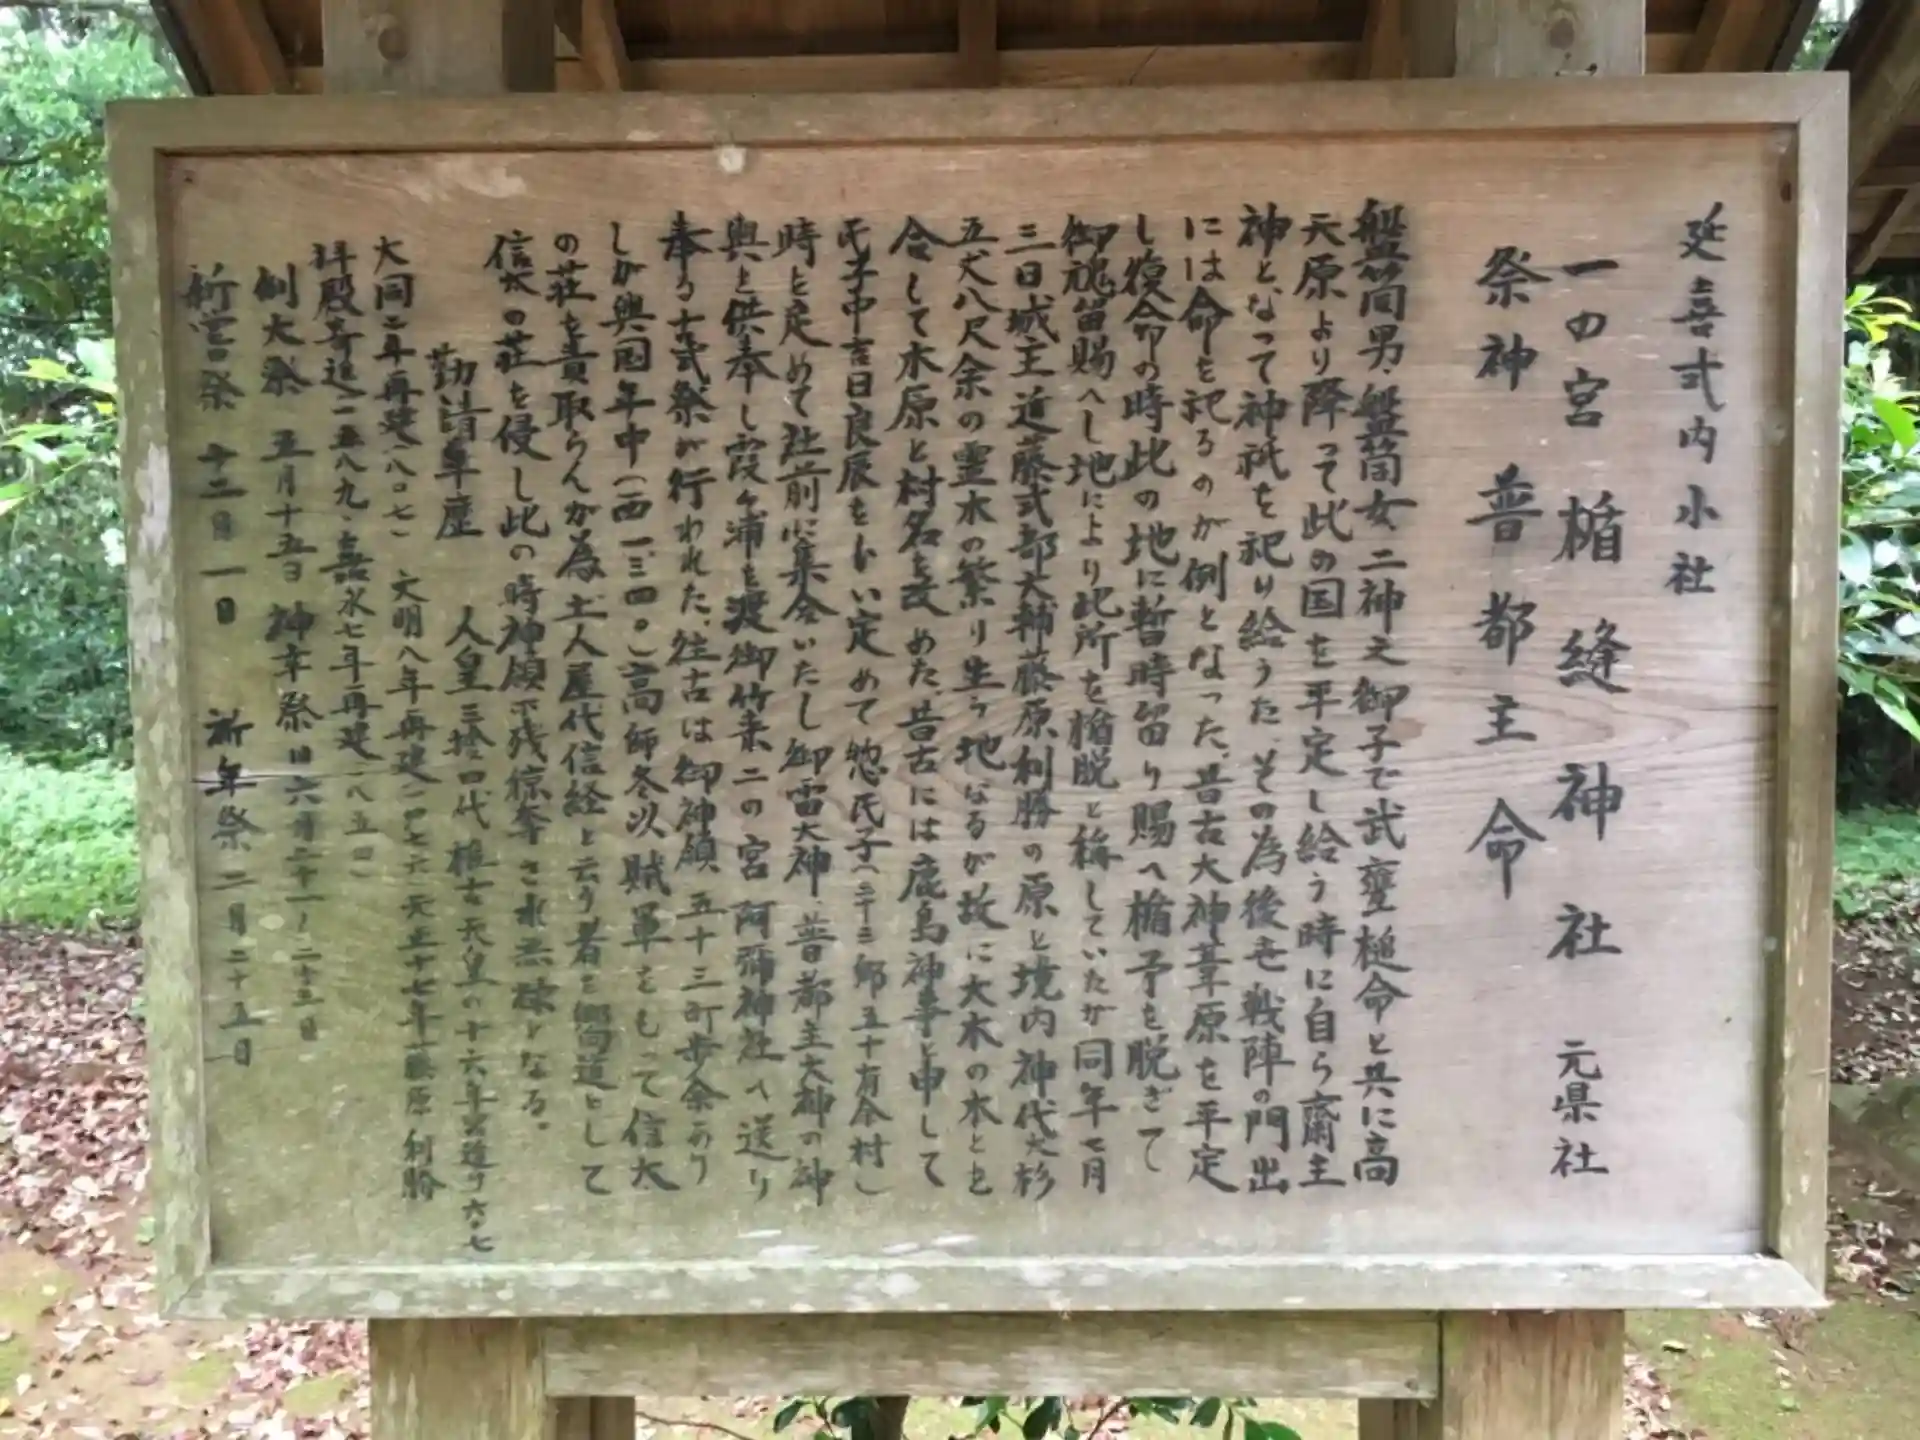 延喜式内小社
一の宮 楯縫神社 元県社
祭神 普都主命
盤筒男、盤筒女、二神之御子で武甕槌命と共に高
天原より降って此の国を平定し給う時に自ら齋主
神となって神祇を祀り給うた、その為後世戦陣の門出
には命を祀るのが例となった、昔古大神葦原を平定
し復命の時此の地に暫時留り賜へ楯予を脱ぎて
御魂留賜へし地により此所を楯脱と稱していたが同年七月
三日城主近藤式部大輔藤原利勝の原と境内神代大杉
五丈八尺余の霊木の繁り生う地なるが故に大木の木とを
合して木原と村名を改めた、昔古には鹿島神事と申して
氏子中吉日良辰を卜い定めて惣氏子(二十三郷五十有余村)
時を定めて社前に集合いたし御雷大神、普都主大神の神
輿と供奉し霞ヶ浦を渡御竹来二の宮阿彌神社へ送り
奉る古式祭が行われた、往古は御神領五十三町歩余あり
しが興国年中(西一三四〇)高師冬以賊軍をもって信太
の荘を責取らんが為、土人屋代信経と云う者を嚮道として
信太の荘を侵し此の時神領下残掠奪され無禄となる。
勧請年歴 人皇三拾四代推古天皇の十六年 六〇七
大同二年再建(八〇七) 文明八年再建(一四七六) 天正十七年藤原利勝
拝殿寄進(一五八九)嘉永七年再建(一八五四)
例大祭 五月十五日 神幸祭 旧六月二十一～二十三日
新嘗祭 十二月一日 祈年祭 二月二十五日